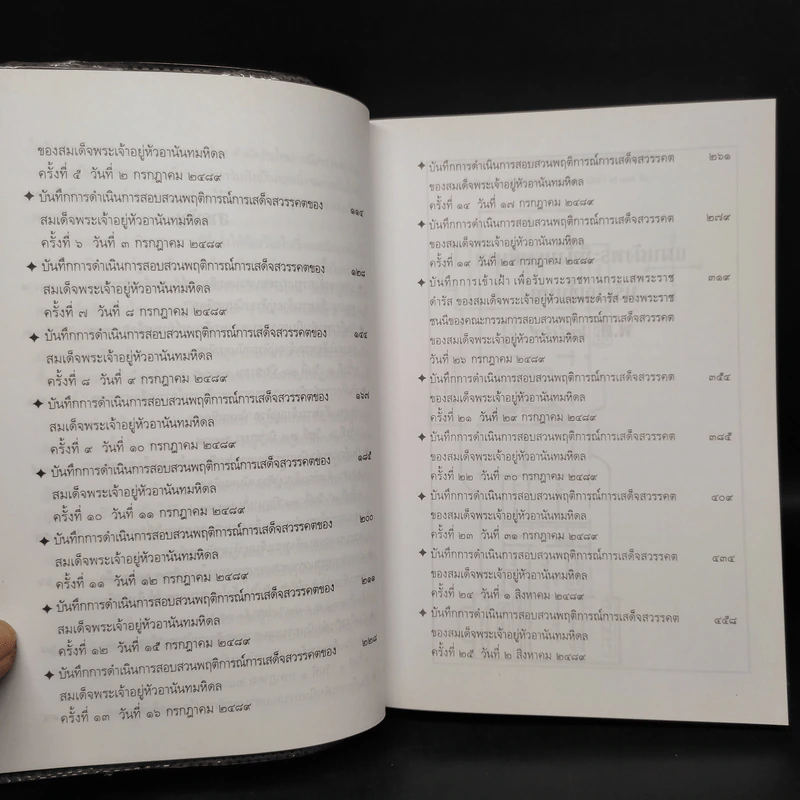 ของสมเด็จพระเจ้าอยู่หัวอานันทมหิดล
ครั้งที่ ๕ วันที่ ๒ กรกฎาคม ๒๔๘๙
✦ บันทึกการดำเนินการสอบสวนพฤติการณ์การเสด็จสวรรคตของ ๑๑๔
สมเด็จพระเจ้าอยู่หัวอานันทมหิดล
ครั้งที่ ๖ วันที่ ๓ กรกฎาคม ๒๔๘๙
✦ บันทึกการดำเนินการสอบสวนพฤติการณ์การเสด็จสวรรคตของ ๑๒๘
สมเด็จพระเจ้าอยู่หัวอานันทมหิดล
ครั้งที่ ๗ วันที่ ๘ กรกฎาคม ๒๔๘๙
✦ บันทึกการดำเนินการสอบสวนพฤติการณ์การเสด็จสวรรคตของ ๑๔๔
สมเด็จพระเจ้าอยู่หัวอานันทมหิดล
ครั้งที่ ๘ วันที่ ๙ กรกฎาคม ๒๔๘๙
✦ บันทึกการดำเนินการสอบสวนพฤติการณ์การเสด็จสวรรคตของ ๑๖๗
สมเด็จพระเจ้าอยู่หัวอานันทมหิดล
ครั้งที่ ๙ วันที่ ๑๐ กรกฎาคม ๒๔๘๙
✦ บันทึกการดำเนินการสอบสวนพฤติการณ์การเสด็จสวรรคตของ ๑๘๕
สมเด็จพระเจ้าอยู่หัวอานันทมหิดล
ครั้งที่ ๑๐ วันที่ ๑๑ กรกฎาคม ๒๔๘๙
✦ บันทึกการดำเนินการสอบสวนพฤติการณ์การเสด็จสวรรคตของ ๒๐๐
สมเด็จพระเจ้าอยู่หัวอานันทมหิดล
ครั้งที่ ๑๑ วันที่ ๑๒ กรกฎาคม ๒๔๘๙
✦ บันทึกการดำเนินการสอบสวนพฤติการณ์การเสด็จสวรรคตของ ๒๑๑
สมเด็จพระเจ้าอยู่หัวอานันทมหิดล
ครั้งที่ ๑๒ วันที่ ๑๕ กรกฎาคม ๒๔๘๙
✦ บันทึกการดำเนินการสอบสวนพฤติการณ์การเสด็จสวรรคตของ ๒๒๘
สมเด็จพระเจ้าอยู่หัวอานันทมหิดล
ครั้งที่ ๑๓ วันที่ ๑๖ กรกฎาคม ๒๔๘๙
✦ บันทึกการดำเนินการสอบสวนพฤติการณ์การเสด็จสวรรคต ๒๖๑
ของสมเด็จพระเจ้าอยู่หัวอานันทมหิดล
ครั้งที่ ๑๔ วันที่ ๑๗ กรกฎาคม ๒๔๘๙
✦ บันทึกการดำเนินการสอบสวนพฤติการณ์การเสด็จสวรรคต ๒๗๙
ของสมเด็จพระเจ้าอยู่หัวอานันทมหิดล
ครั้งที่ ๑๙ วันที่ ๒๔ กรกฎาคม ๒๔๘๙
✦ บันทึกการเข้าเฝ้า เพื่อรับพระราชทานกระแสพระราช ๓๑๙
ดำรัส ของสมเด็จพระเจ้าอยู่หัวและพระดำรัส ของพระราช
ชนนีของคณะกรรมการสอบสวนพฤติการณ์การเสด็จสวรรคต
ของสมเด็จพระเจ้าอยู่หัวอานันทมหิดล
วันที่ ๒๖ กรกฎาคม ๒๔๘๙
✦ บันทึกการดำเนินการสอบสวนพฤติการณ์การเสด็จสวรรคต ๓๕๔
ของสมเด็จพระเจ้าอยู่หัวอานันทมหิดล
ครั้งที่ ๒๑ วันที่ ๒๙ กรกฎาคม ๒๔๘๙
✦ บันทึกการดำเนินการสอบสวนพฤติการณ์การเสด็จสวรรคต ๓๘๕
ของสมเด็จพระเจ้าอยู่หัวอานันทมหิดล
ครั้งที่ ๒๒ วันที่ ๓๐ กรกฎาคม ๒๔๘๙
✦ บันทึกการดำเนินการสอบสวนพฤติการณ์การเสด็จสวรรคต ๔๐๙
ของสมเด็จพระเจ้าอยู่หัวอานันทมหิดล
ครั้งที่ ๒๓ วันที่ ๓๑ กรกฎาคม ๒๔๘๙
✦ บันทึกการดำเนินการสอบสวนพฤติการณ์การเสด็จสวรรคต ๔๓๔
ของสมเด็จพระเจ้าอยู่หัวอานันทมหิดล
ครั้งที่ ๒๔ วันที่ ๑ สิงหาคม ๒๔๘๙
✦ บันทึกการดำเนินการสอบสวนพฤติการณ์การเสด็จสวรรคต ๔๕๘
ของสมเด็จพระเจ้าอยู่หัวอานันทมหิดล
ครั้งที่ ๒๕ วันที่ ๒ สิงหาคม ๒๔๘๙